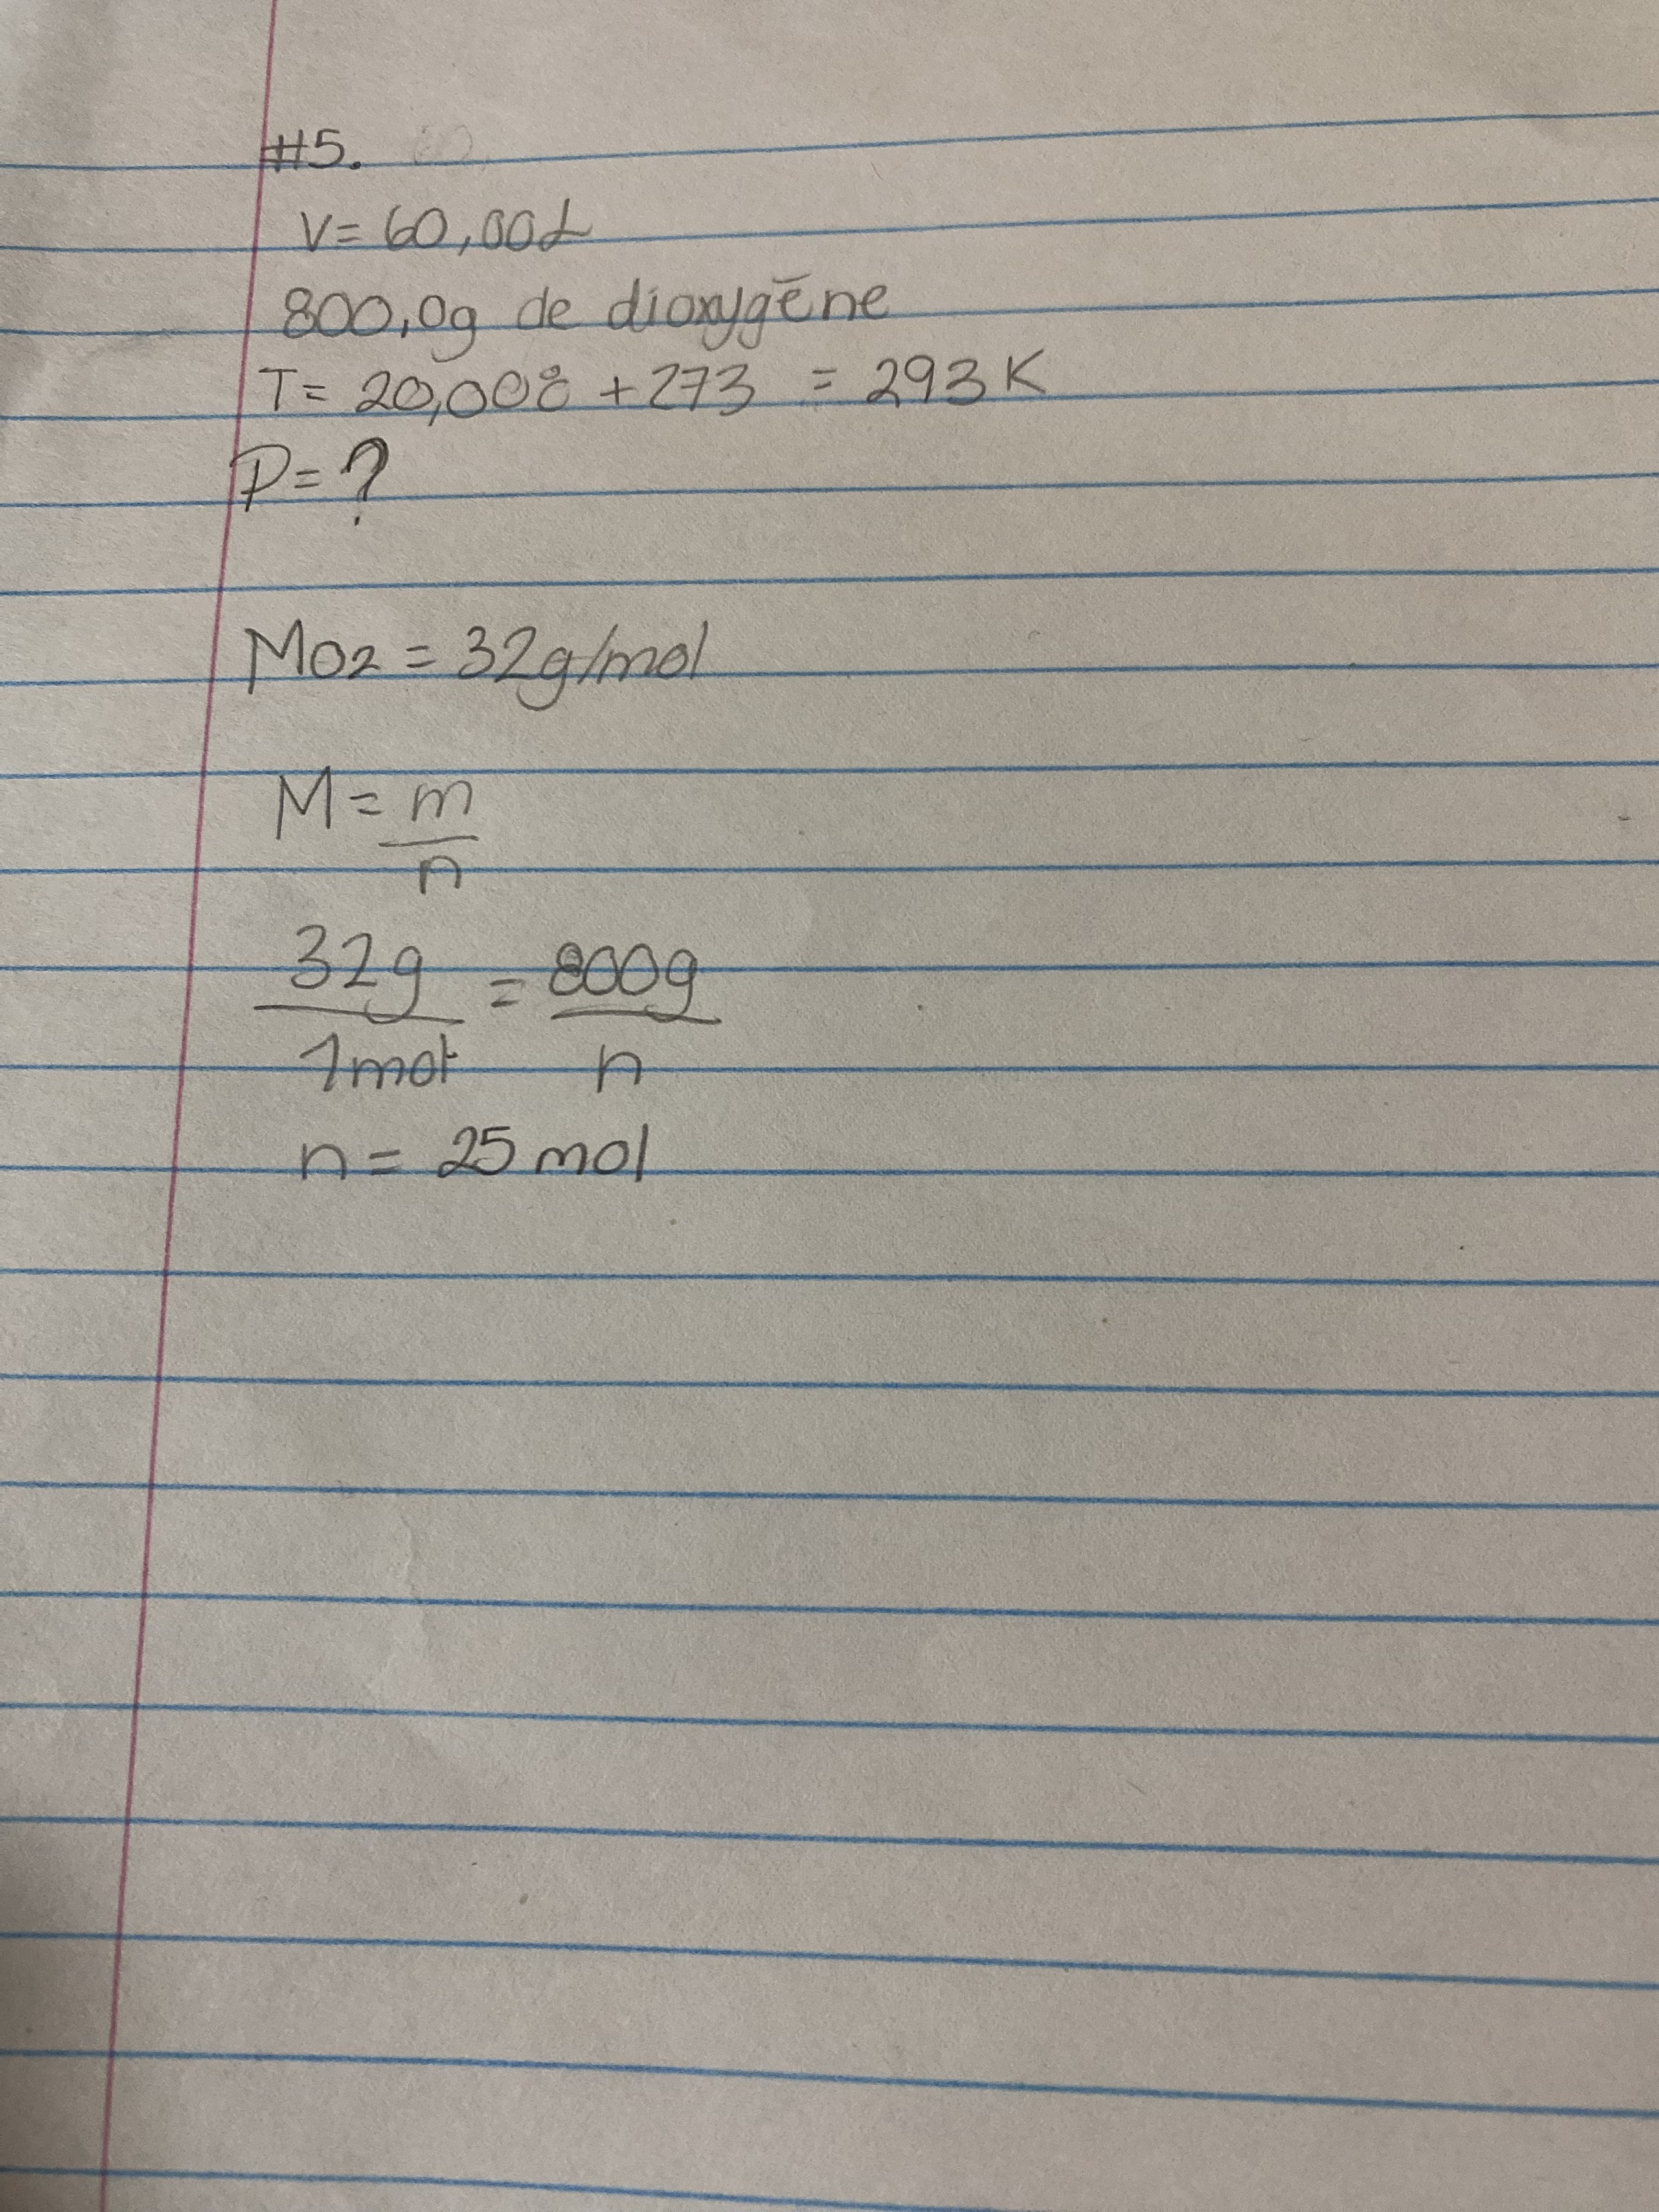 #5.
V= 60,00L
800,0g de dioxygène
T= 20,00°C +273 = 293 K
P= ?
MO2 = 32g/mol
M= m
n
32g = 800g
1mol n
n= 25 mol